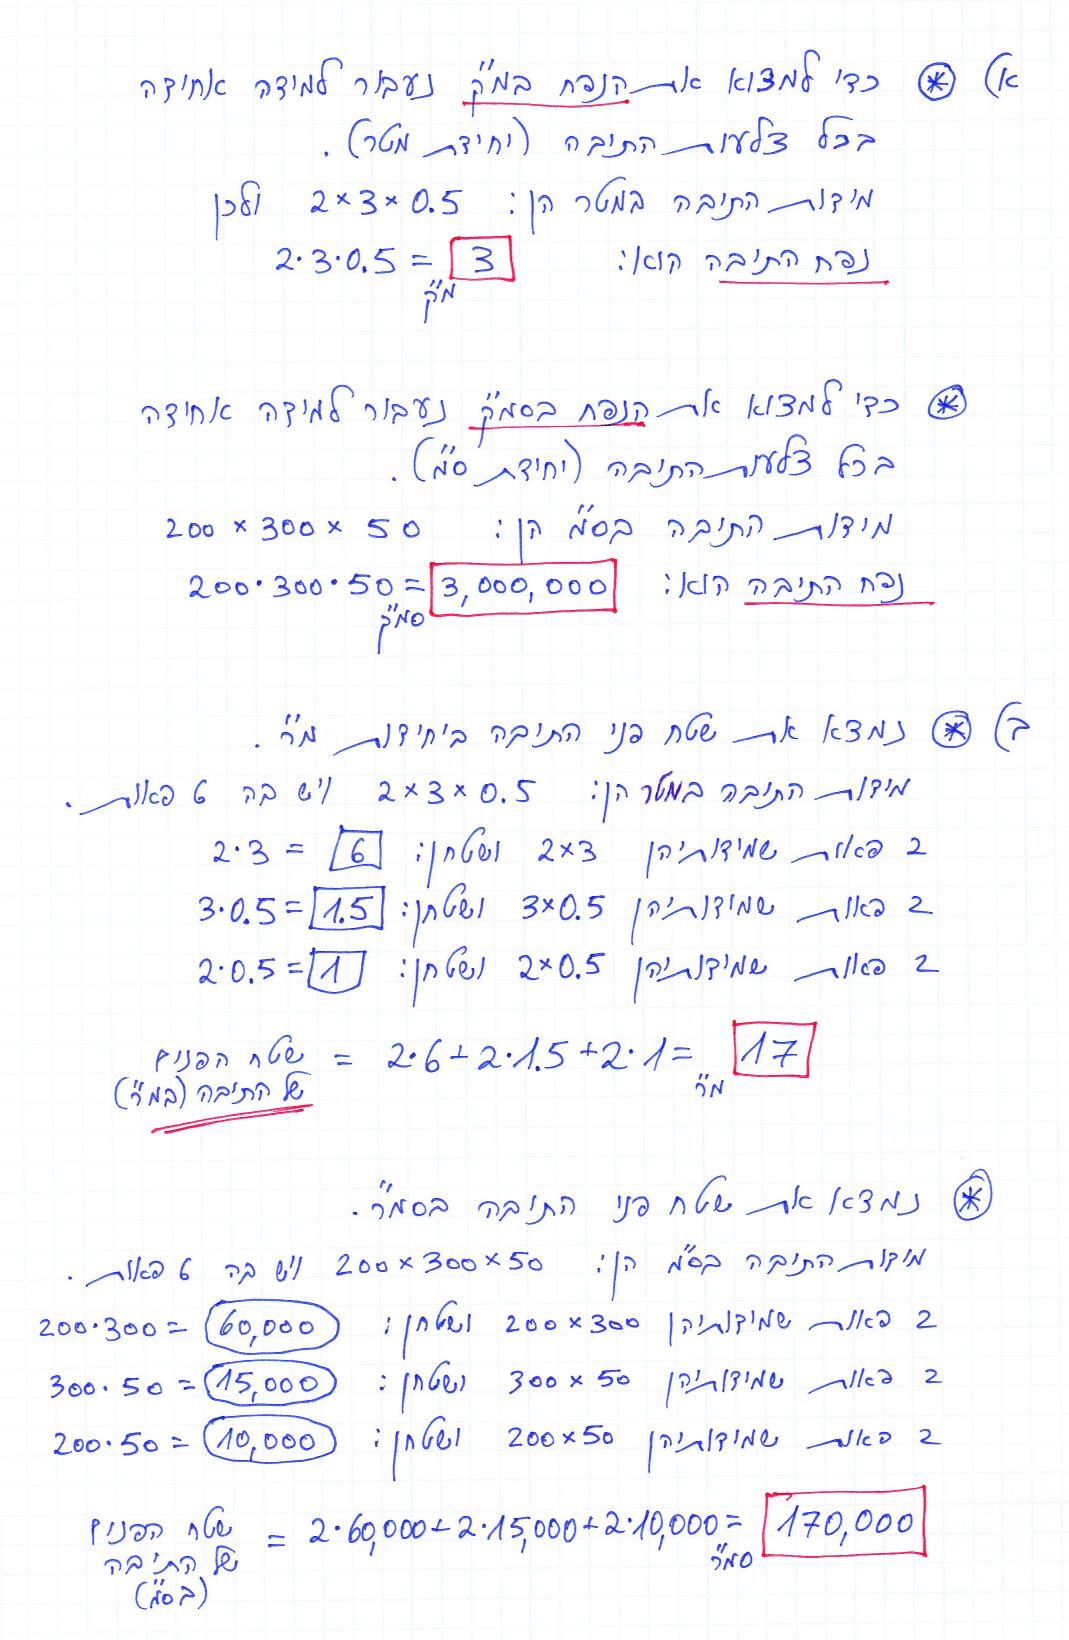 א) * כדי למצוא את הנפח במ"ק נעבור למידה אחידה
בכל צלעות התיבה (יחידת מטר).
מידות התיבה במטר הן: 2×3×0.5 ולכן
נפח התיבה הוא: 2·3·0.5 = 3 מ"ק
* כדי למצוא את הנפח בסמ"ק נעבור למידה אחידה
בכל צלעות התיבה (יחידת ס"מ).
מידות התיבה בס"מ הן: 200 × 300 × 50
נפח התיבה הוא: 200·300·50 = 3,000,000 סמ"ק
ב) * נמצא את שטח פני התיבה ביחידות מ"ר.
מידות התיבה במטר הן: 2×3×0.5 ויש בה 6 פאות.
2 פאות שמידותיהן 2×3 ושטחן: 2·3 = 6
2 פאות שמידותיהן 3×0.5 ושטחן: 3·0.5 = 1.5
2 פאות שמידותיהן 2×0.5 ושטחן: 2·0.5 = 1
שטח הפנים = 2·6+2·1.5+2·1 = 17 מ"ר
של התיבה (במ"ר)
* נמצא את שטח פני התיבה בסמ"ר.
מידות התיבה בס"מ הן: 200×300×50 ויש בה 6 פאות.
2 פאות שמידותיהן 200×300 ושטחן: 200·300 = 60,000
2 פאות שמידותיהן 300×50 ושטחן: 300·50 = 15,000
2 פאות שמידותיהן 200×50 ושטחן: 200·50 = 10,000
שטח הפנים = 2·60,000+2·15,000+2·10,000 = 170,000 סמ"ר
של התיבה
(בס"מ)